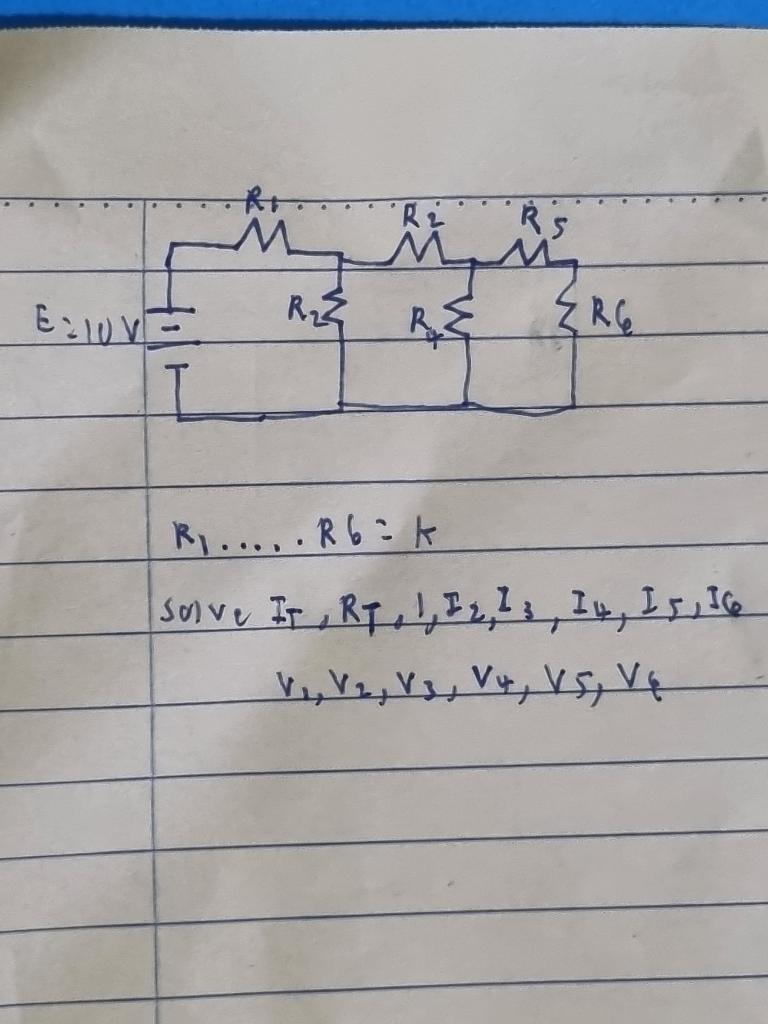 R1
R2 R5
E=10V R2 R4 R6
R1.....R6=k
Solve IT, RT, 1, I2, I3, I4, I5, I6
V1, V2, V3, V4, V5, V6